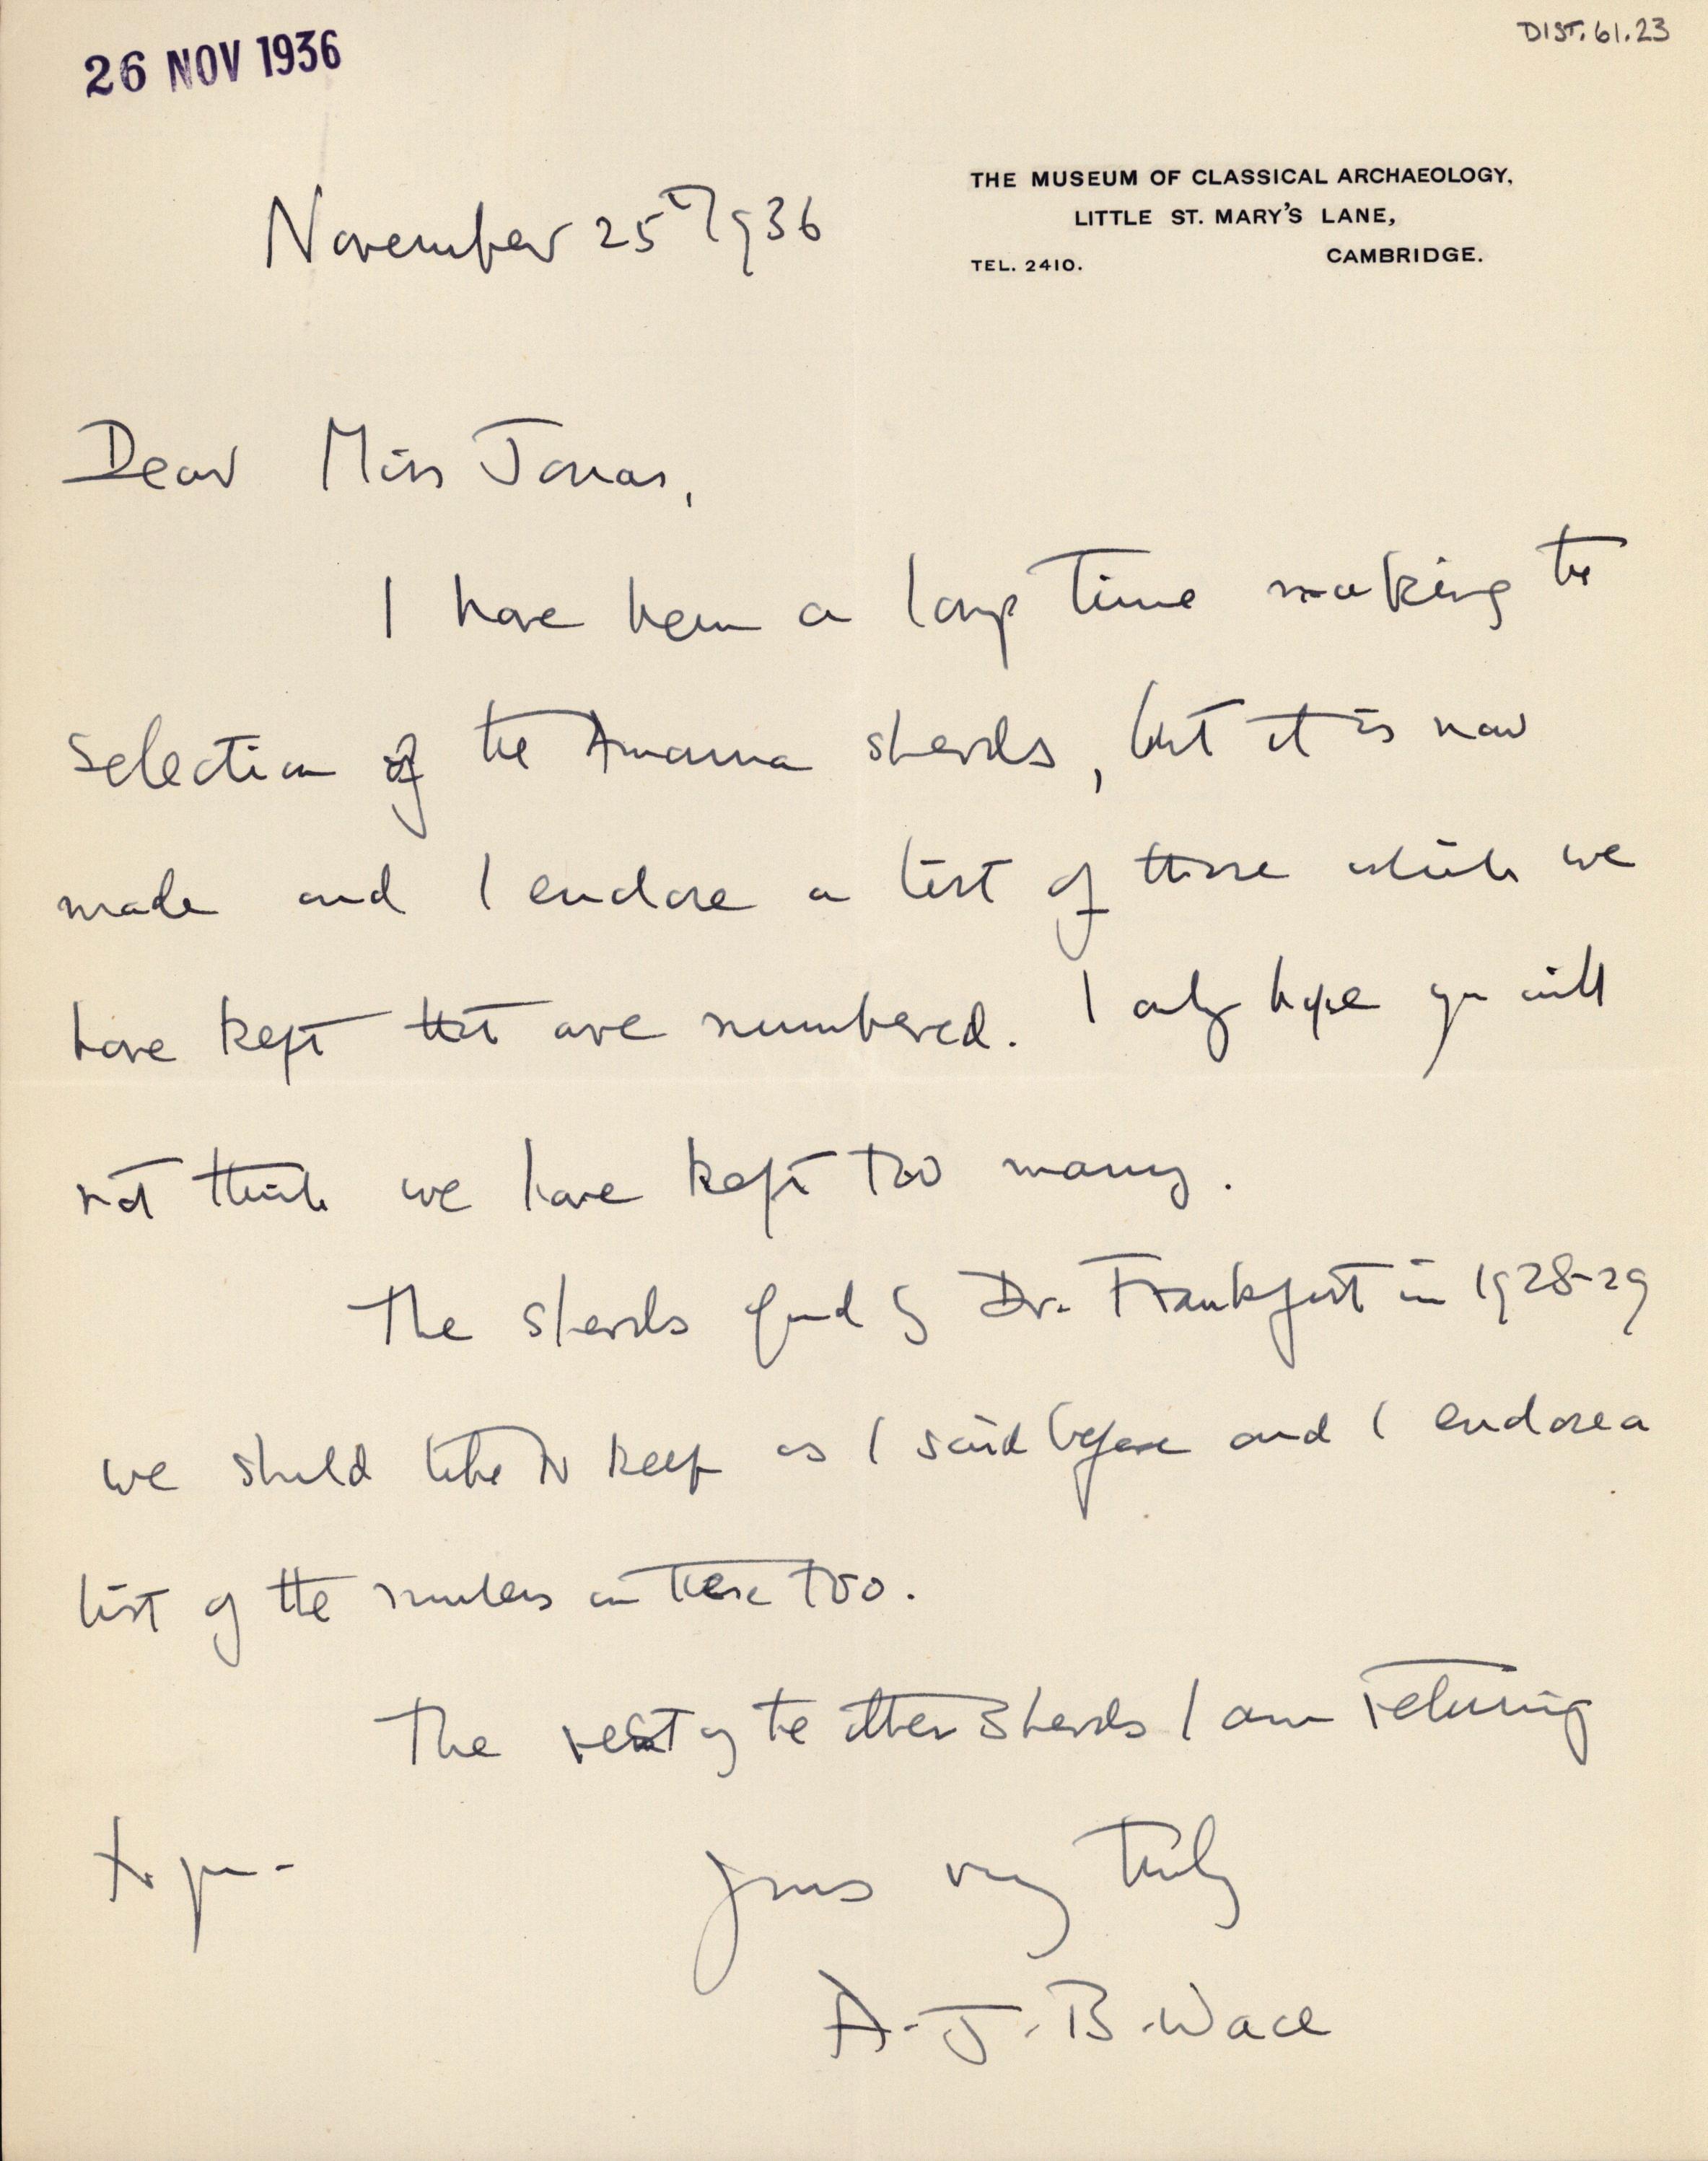 26 NOV 1936
DIST. 61.23
THE MUSEUM OF CLASSICAL ARCHAEOLOGY,
LITTLE ST. MARY'S LANE,
TEL. 2410. CAMBRIDGE.
November 25th 1936
Dear Miss Jonas,
I have been a long time making the
selection of the Amarna sherds, but it is now
made and I enclose a list of those which we
have kept that are numbered. I only hope you will
not think we have kept too many.
The sherds found by Dr. Frankfort in 1928-29
we should like to keep as I said before and I enclose a
list of the numbers on these too.
The rest of the other sherds I am returning
to you.
Yours very truly
A. J. B. Wace